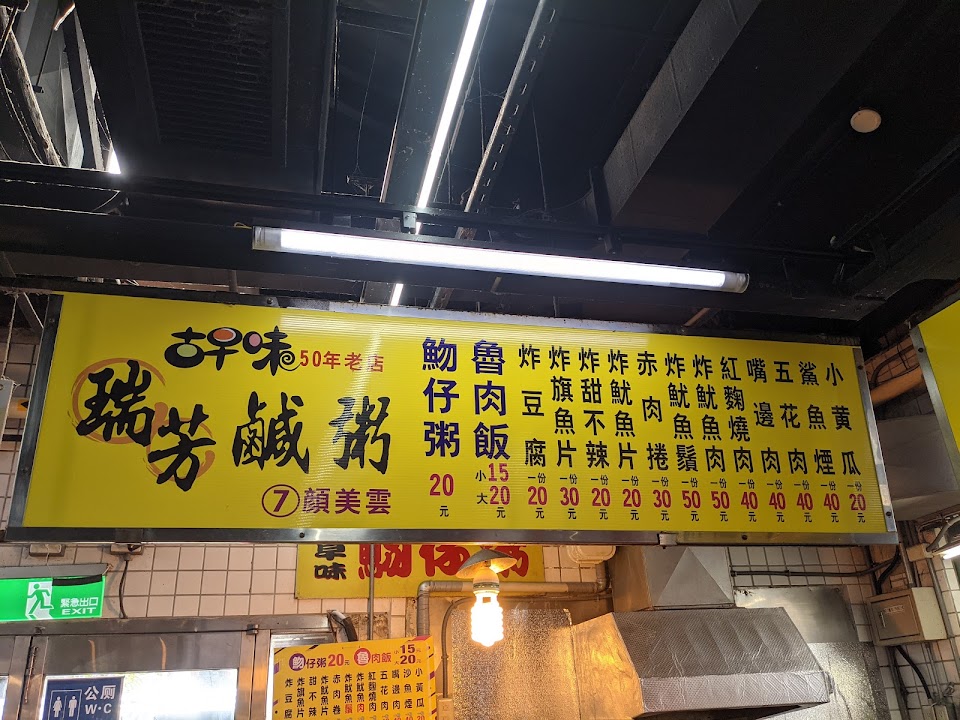 古早味
50年老店
瑞芳鹹粥
7 顏美雲
魩仔粥 20元
魯肉飯 小15 大20元
炸豆腐 一份20元
炸旗魚片 一份30元
炸甜不辣 一份20元
炸魷魚片 一份20元
赤肉捲 一份30元
炸魷魚鬚 一份50元
炸魷魚肉 一份50元
紅麴燒肉 一份40元
嘴邊肉 一份40元
五花肉 一份40元
鯊魚煙 一份40元
小黄瓜 一份20元
緊急出口
EXIT
公廁
W·C
魩仔粥20元
魯肉飯 小15 大20元
炸豆腐
炸旗魚片
甜不辣
炸魷魚片
赤肉卷
五花肉
嘴邊肉
沙魚煙
小黃瓜